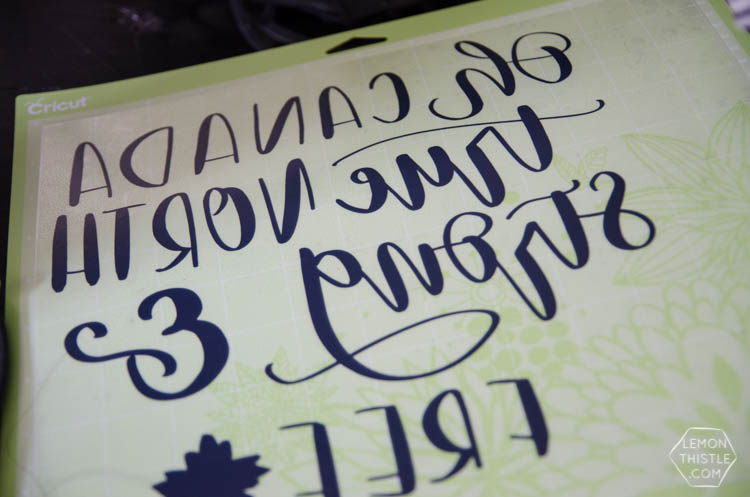 cricut
oh CANADA
true NORTH
strong &
FREE
LEMON
THISTLE
.COM